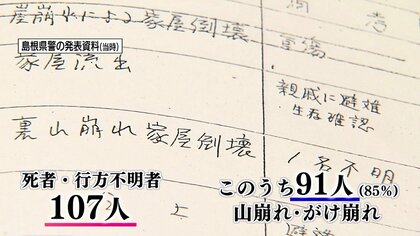 崖崩れによる家屋倒壊
重傷
島根県警の発表資料(当時)
家屋流出
親戚に避難
生存確認
裏山崩れ家屋倒壊
1名不明
死者・行方不明者
107人
このうち91人(85%)
山崩れ・がけ崩れ